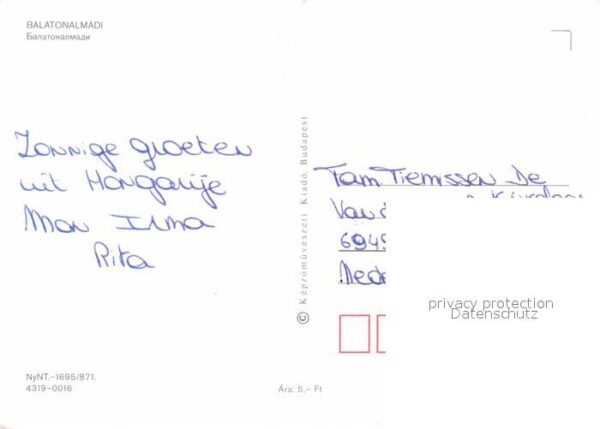 BALATONALMÁDI
Балатоналмади
Zonnige groeten
uit Hongarije
Mon Irma
Rita
© Képzőművészeti Kiadó, Budapest
Fam Tiemissen De
Van
6949
Nede
privacy protection
Datenschutz
NyNT.–1695/871.
4319–0016
Ára: 5,– Ft